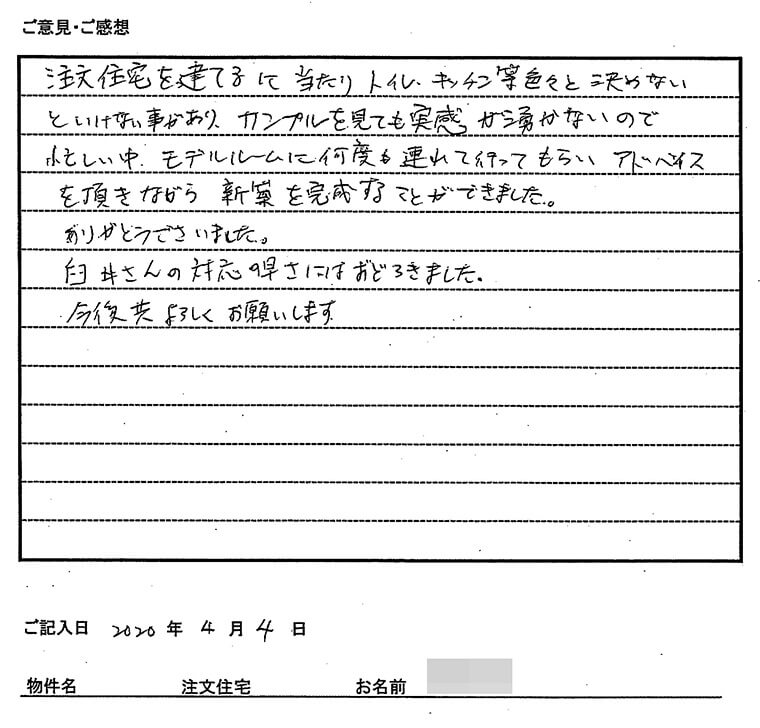 ご意見・ご感想
注文住宅を建てるに当たりトイレ、キッチン等色々と決めない
といけない事があり、サンプルを見ても実感が湧かないので
忙しい中、モデルルームに何度も連れて行ってもらいアドバイス
を頂きながら新築を完成することができました。
ありがとうございました。
臼井さんの対応の早さにはおどろきました。
今後共よろしくお願いします
ご記入日 2020 年 4 月 4 日
物件名 注文住宅 お名前